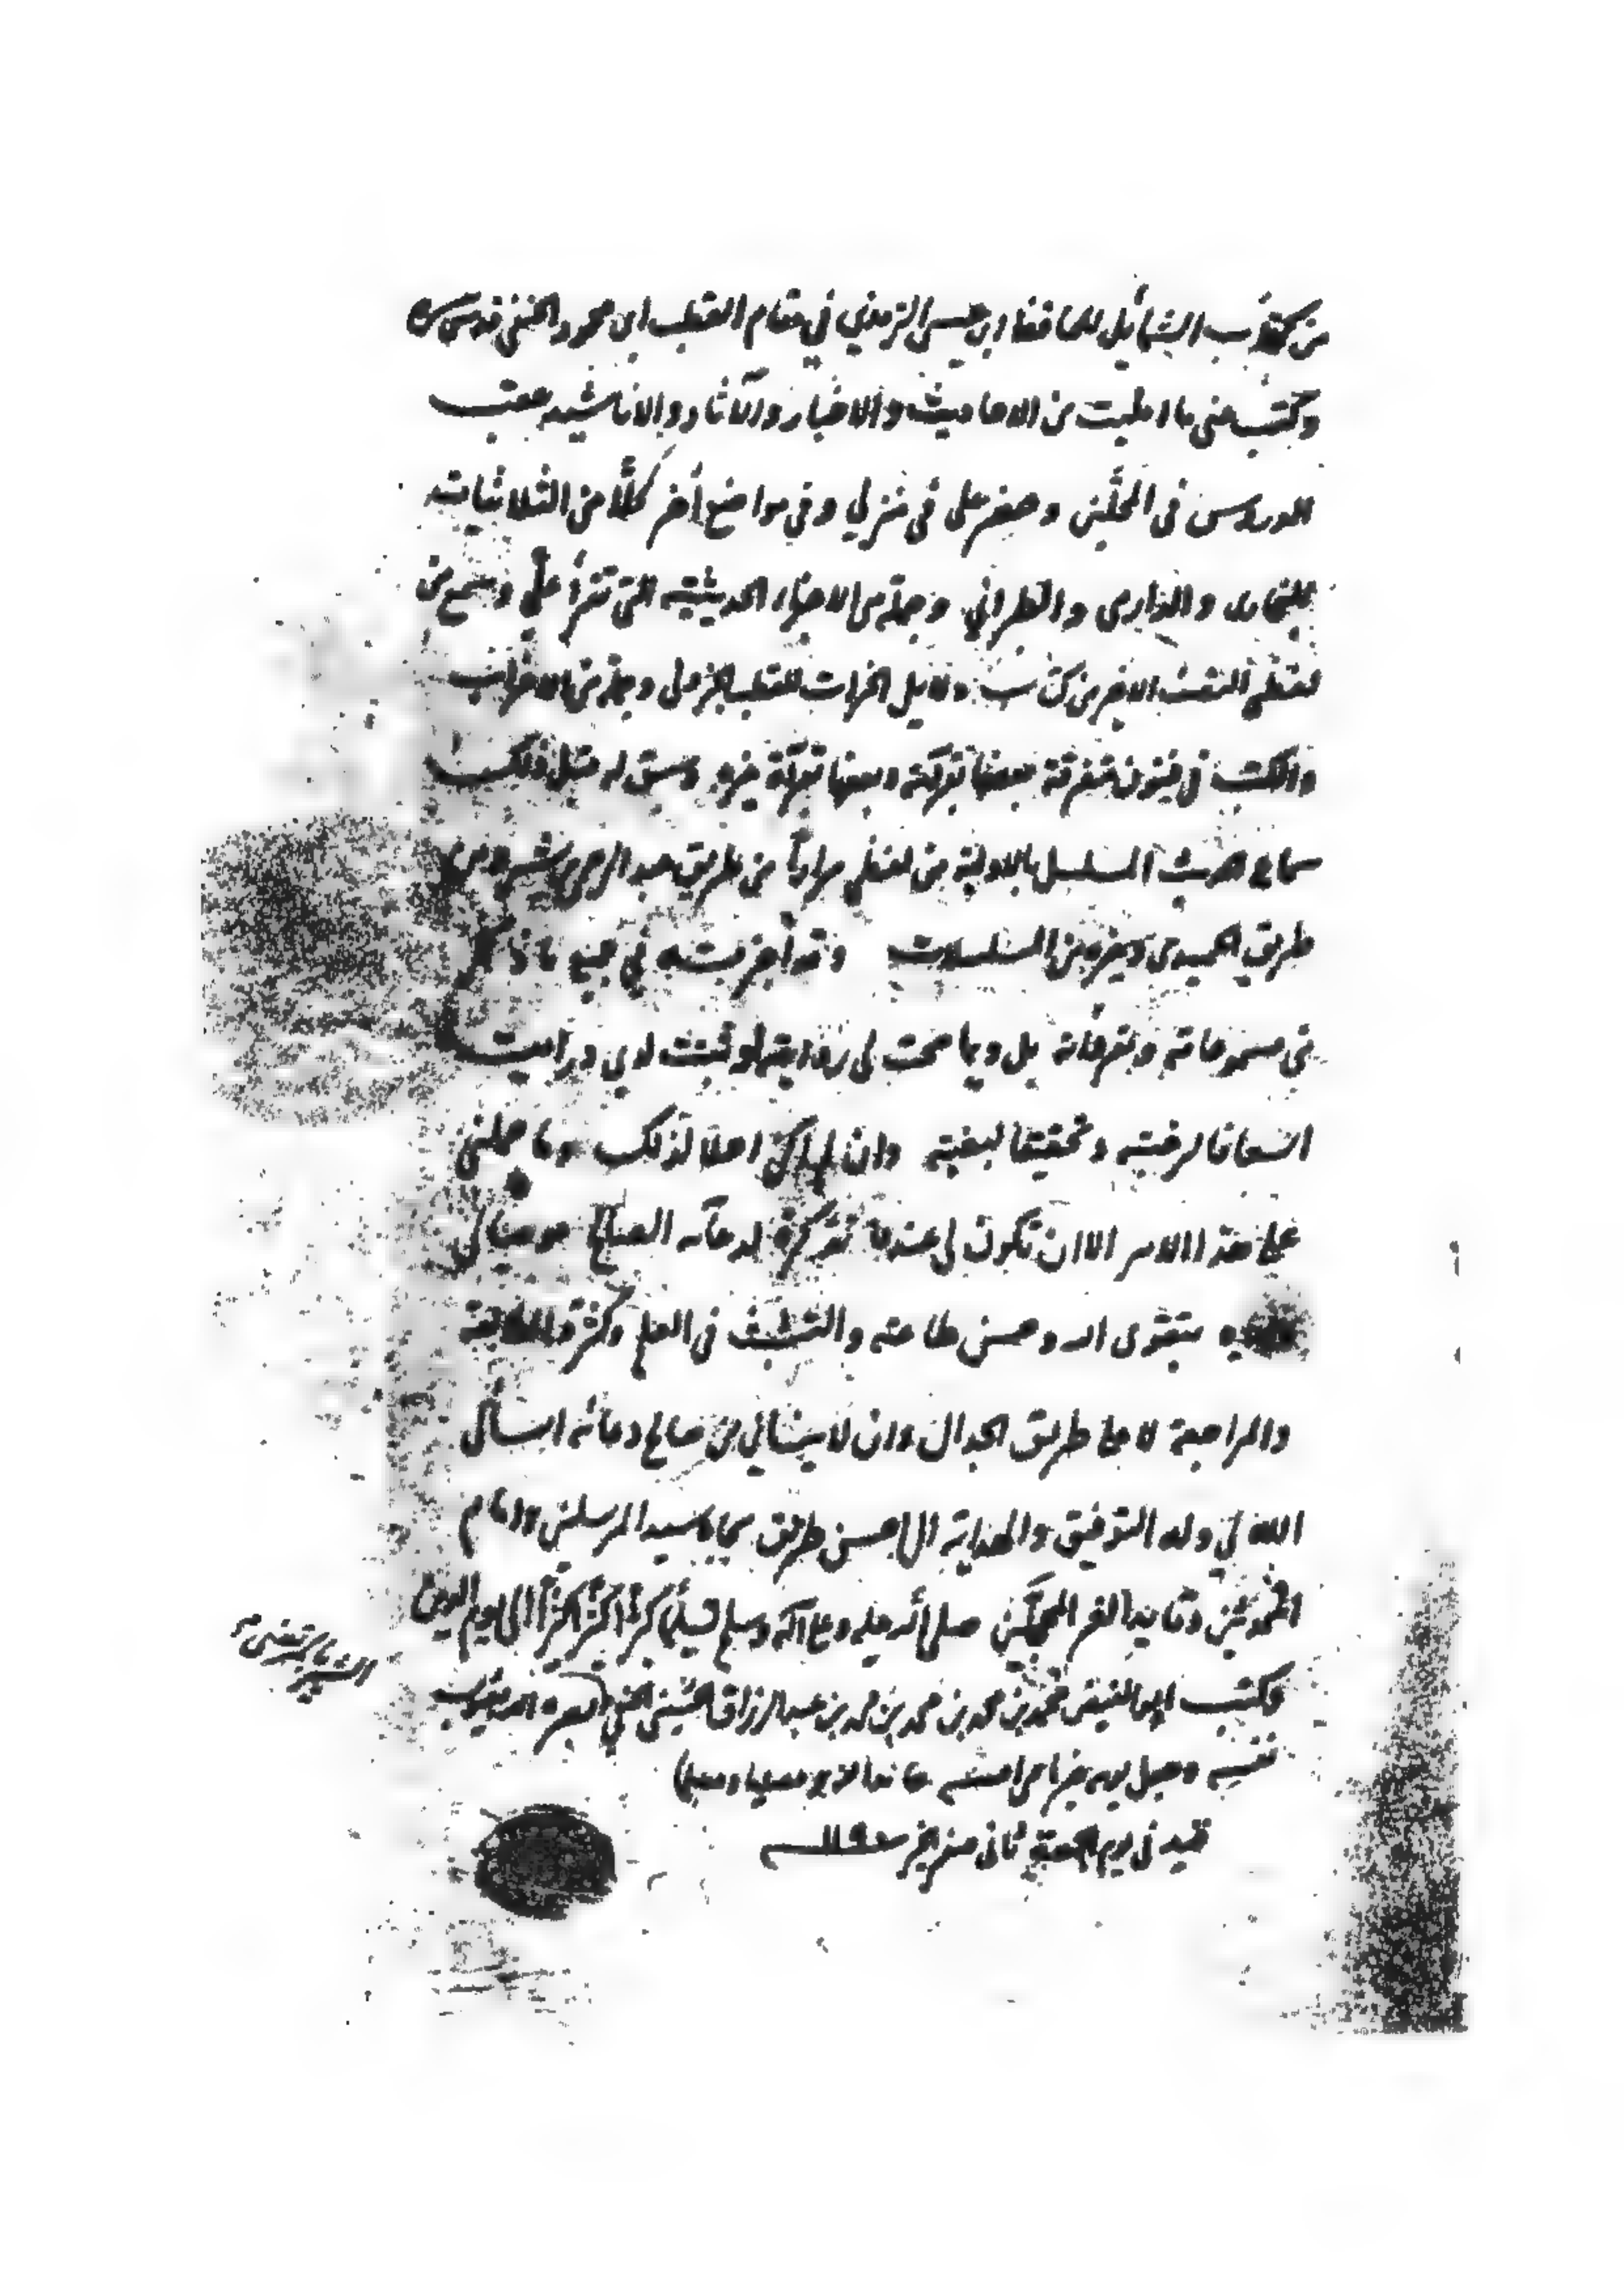 من كتاب الشمائل للحافظ ابن عيسى الترمذي في مقام القطب ابن محمود الحنفي قدس سره
وكتب عني ما امليت من الاحاديث والاخبار والآثار والاناشيد عقب
الدروس في المحلين وحضر علي في منزلي وفي مواضع أخر كلًا من الثلاثيات
للبخاري والدارمي والطبراني وجملة من الاجزاء الحديثية التي تقرأ علي وسمع من
لفظي النصف الاخير من كتاب دلايل الخيرات للقطب الجزولي وجملة من الاحزاب
والكتب في فنون متفرقة بعضها بقراءته وبعضها بقراءة غيره وسبق له قبل ذلك
سماع الحديث المسلسل بالاولية من لفظي مرارا من طريق عبد الرحمن بن بشر ومن
طريق الحميدي وغيره من المسلسلات وقد أجزت له في جميع ما ذكر
في مسموعاته ومقروءاته بل وبما صحت لي روايته او ثبتت لدي درايته
اسعافا لرغبته وتحقيقا لبغيته وان لم اكن اهلا لذلك وما حملني
على هذا الامر الا ان تكون لي عنده تذكرة لدعائه الصالح موصيا لي
بتقوى الله وحسن طاعته والتثبت في العلم وكثرة المطالعة
والمراجعة لا على طريق الجدال وان لا ينساني من صالح دعائه اسأل
الله لي وله التوفيق والهداية الى احسن طريق بجاه سيد المرسلين وامام
وقايد الغر المحجلين صلى الله عليه وعلى آله وسلم تسليما كثيرا كثيرا كثيرا الى يوم الدين
وكتب ابو الفيض محمد بن محمد بن محمد بن محمد بن عبد الرزاق الحسيني الحنفي بصره الله بعيوب
نفسه وجعل يومه خيرا من امسه حامدا لله مصليا ومسلما
قيد في يوم الجمعة ثاني صفر الخير سنة